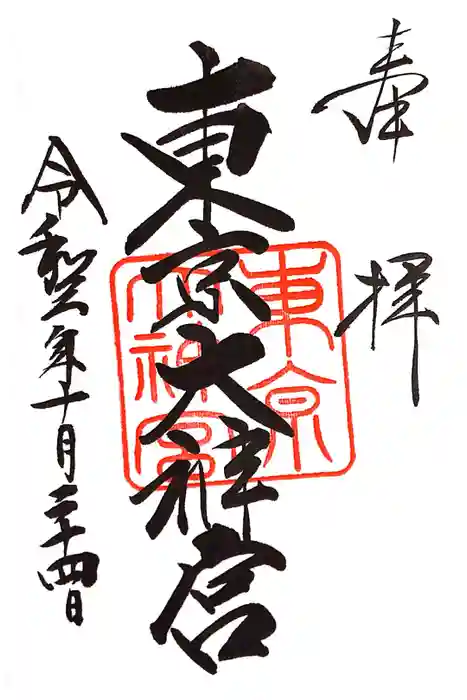 奉拝
東京大神宮
令和六年十月二十四日
東京大神宮